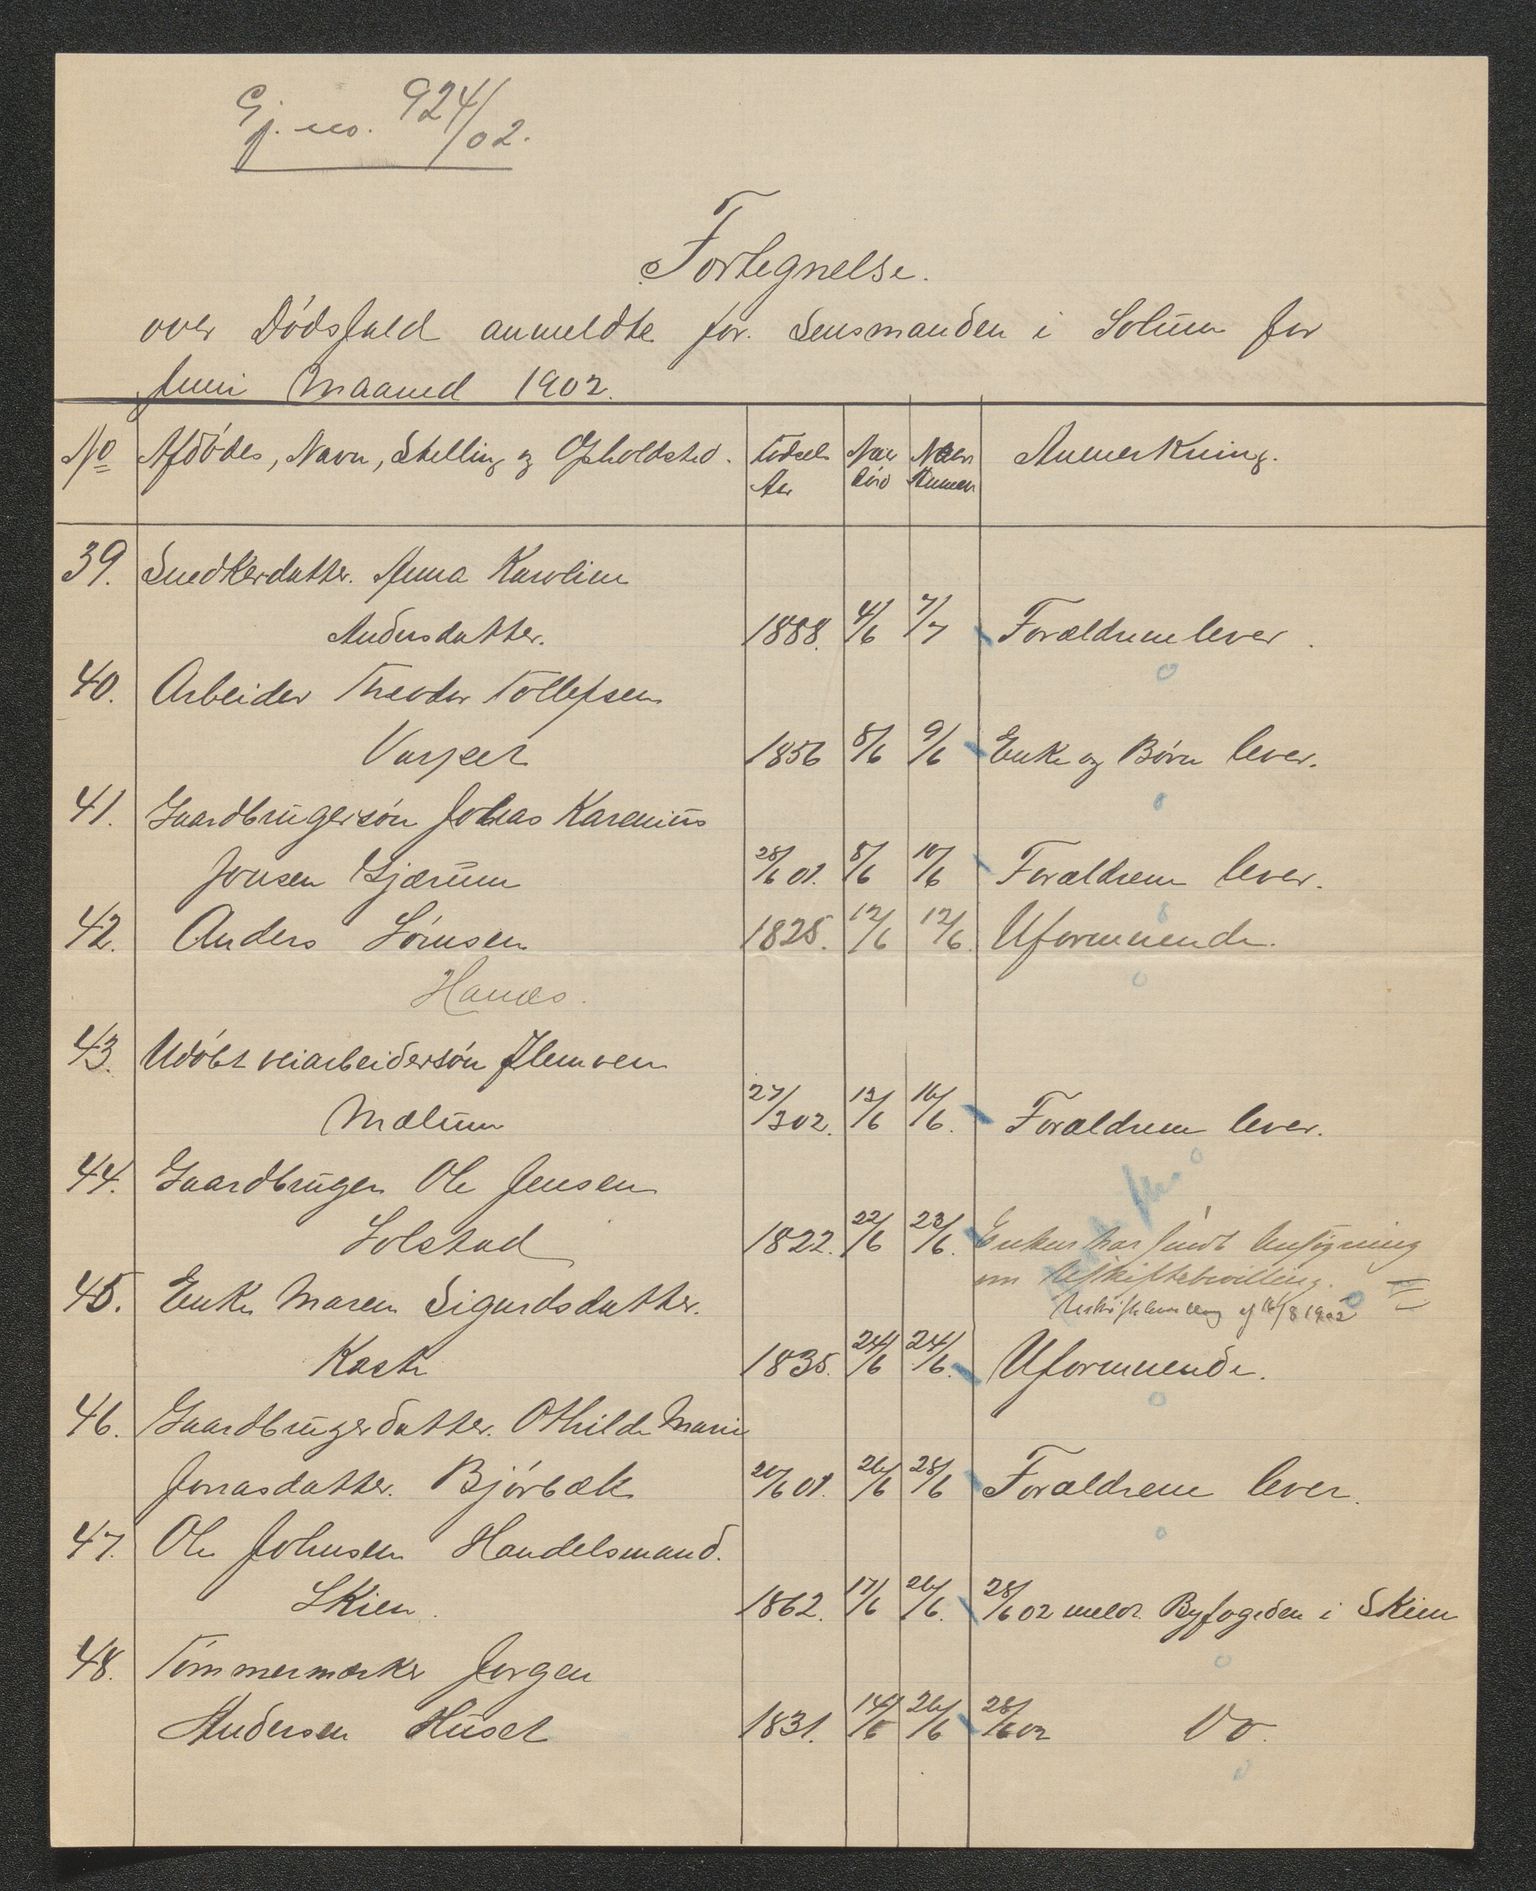 Gj. no. 924/02.
Fortegnelse.
over Dödsfald anmeldte for Lensmanden i Solum for
Juni Maaned 1902.
No Afdödes, Navn, Stilling og Opholdsted. Födsels Aar Naar död Naar Anmeldt Anmerkning.
39. Snedkerdatter. Anna Karoline
Andersdatter. 1888. 4/6 7/7 Forældrene lever.
40. Arbeider Theodor Tollefsen
1856 8/6 9/6 Enke og Börn lever.
41. Gaardbrugersön Johas Karenius
Jonsen Gjærum 28/6 01. 8/6 10/6 Forældrene lever.
42. Anders Sörnsen 1825. 12/6 12/6. Uformuende.
43. Udöbt veiarbeidersön
Mælum 27/302. 13/6 16/6. Forældrene lever.
44. Gaardbruger Ole Jensen
Solstad 1822. 22/6 23/6. Enken har sendt Ansögning
om Uskiftebevilling.
Uskiftebevilling af 16/8 1902
45. Enke Maren Sigurdsdatter.
Kaste 1835. 24/6 24/6. Uformuende.
46. Gaardbrugerdatter. Othilde Marie
Jonasdatter. Björbæk 20/6 01. 26/6 28/6 Forældrene lever.
47. Ole Johnsen Handelsmand.
Skien. 1862. 17/6 26/6. 28/6 02 meldt Byfogeden i Skien
48. Tömmermærker Jorgen
Andersen Huset 1831. 14/6 26/6 28/602 Do.